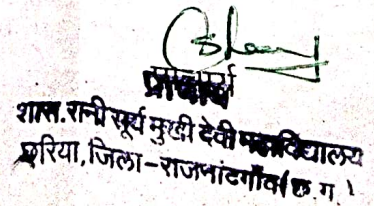 प्राचार्य
शास. रानी सूर्य मुखी देवी महाविद्यालय
छुरिया, जिला-राजनांदगाँव (छ.ग.)